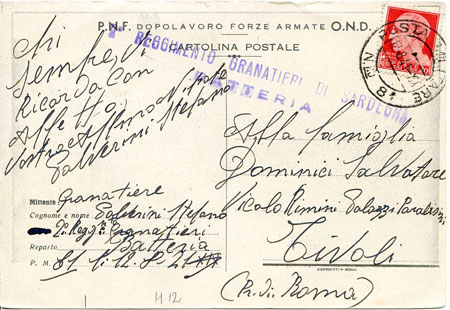 P.N.F. DOPOLAVORO FORZE ARMATE O.N.D.
CARTOLINA POSTALE
2° REGGIMENTO GRANATIERI DI SARDEGNA
BATTERIA
POSTA MILITARE
N. 81
Chi
sempre Vi
Ricorda Con
Affetto,
Vostro Aff.mo
Salvorini Stefano
Alla Famiglia
Dominici Salvatore
Vicolo Rimini Palazzi
Tivoli
(P. di Roma)
Mittente Granatiere
Cognome e nome Salvorini Stefano
2° Regg. Granatieri
Reparto Batteria
P. M. 81 li 12. 8° 21
CAPRIOTTI - ROMA
H 12